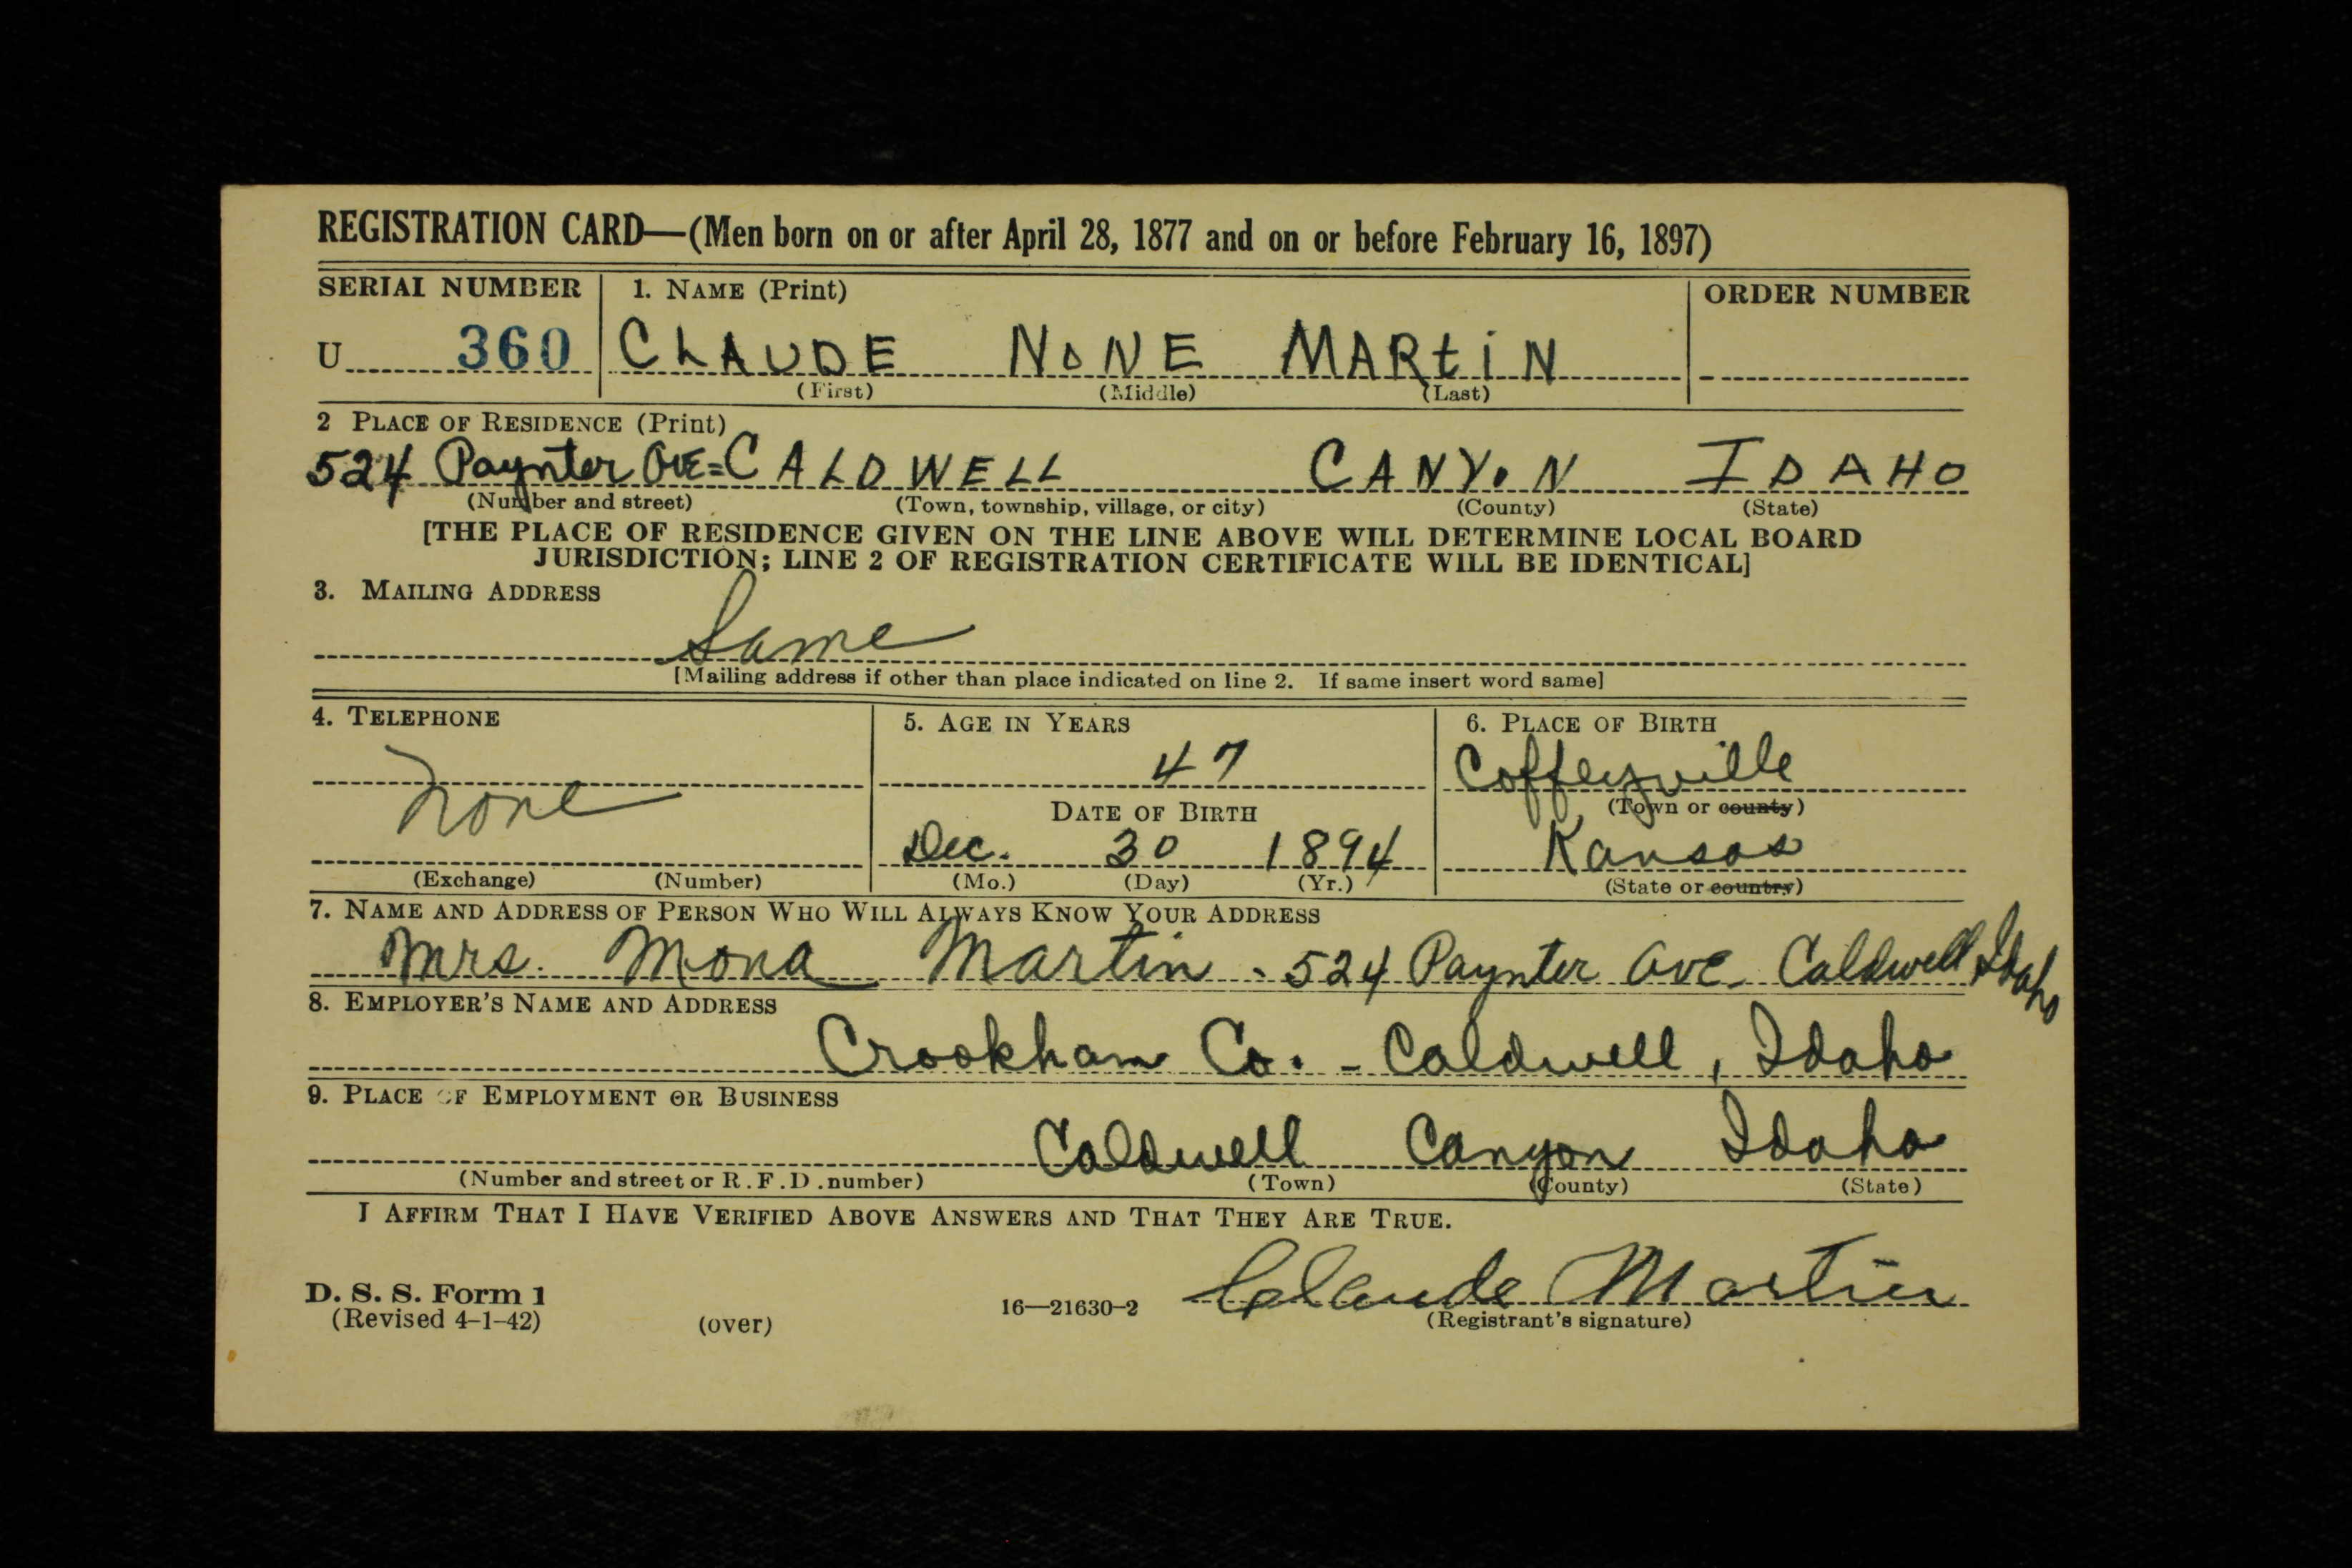 REGISTRATION CARD—(Men born on or after April 28, 1877 and on or before February 16, 1897)
SERIAL NUMBER 1. NAME (Print) ORDER NUMBER
U 360 CLAUDE NONE MARtiN
(First) (Middle) (Last)
2 PLACE OF RESIDENCE (Print)
524 Paynter AVE= CALDWELL CANYON IDAHO
(Number and street) (Town, township, village, or city) (County) (State)
[THE PLACE OF RESIDENCE GIVEN ON THE LINE ABOVE WILL DETERMINE LOCAL BOARD
JURISDICTION; LINE 2 OF REGISTRATION CERTIFICATE WILL BE IDENTICAL]
3. MAILING ADDRESS
Same
[Mailing address if other than place indicated on line 2. If same insert word same]
4. TELEPHONE 5. AGE IN YEARS 6. PLACE OF BIRTH
None 47 Coffeyville
DATE OF BIRTH (Town or county)
Dec. 30 1894 Kansas
(Exchange) (Number) (Mo.) (Day) (Yr.) (State or country)
7. NAME AND ADDRESS OF PERSON WHO WILL ALWAYS KNOW YOUR ADDRESS
Mrs. Mona Martin - 524 Paynter Ave - Caldwell Idaho
8. EMPLOYER'S NAME AND ADDRESS
Crookham Co. - Caldwell, Idaho
9. PLACE OF EMPLOYMENT OR BUSINESS
Caldwell Canyon Idaho
(Number and street or R. F. D. number) (Town) (County) (State)
I AFFIRM THAT I HAVE VERIFIED ABOVE ANSWERS AND THAT THEY ARE TRUE.
Claude Martin
D. S. S. Form 1
(Revised 4-1-42) (over) 16—21630-2 (Registrant's signature)